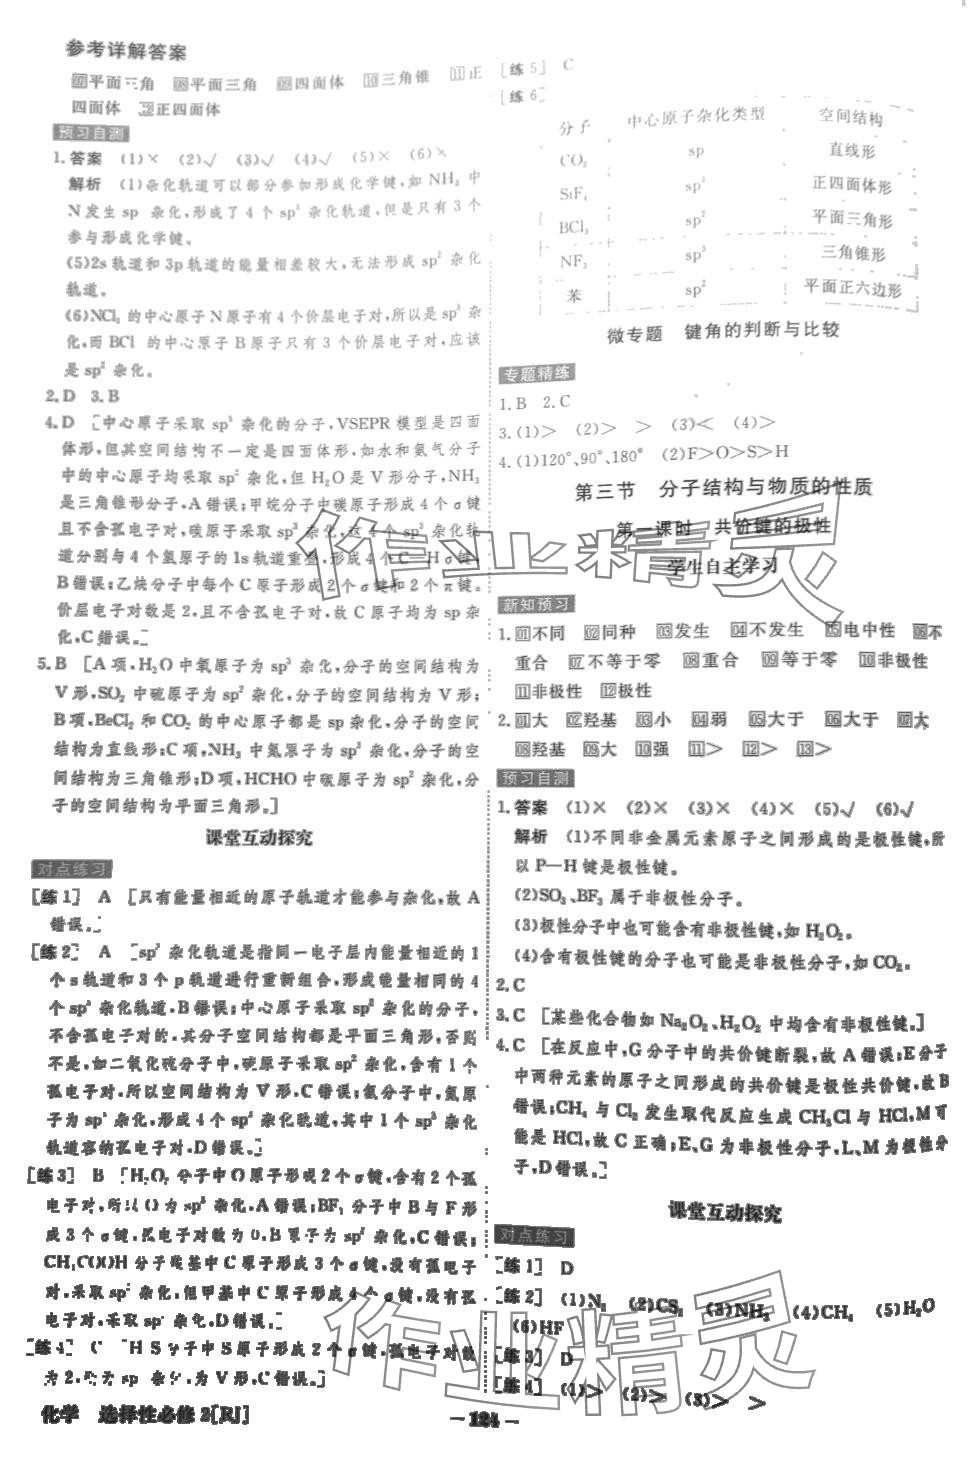 参考详解答案
07平面三角 08平面三角 09四面体 10三角锥 11正
四面体 12正四面体
预习自测
1.答案 (1)× (2)√ (3)√ (4)√ (5)× (6)×
解析 (1)杂化轨道可以部分参加形成化学键,如 NH₃ 中
N发生 sp 杂化,形成了 4 个 sp³ 杂化轨道,但是只有 3 个
参与形成化学键。
(5)2s 轨道和 3p 轨道的能量相差较大,无法形成 sp² 杂化
轨道。
(6)NCl₃ 的中心原子 N 原子有 4 个价层电子对,所以是 sp³ 杂
化,而 BCl 的中心原子 B 原子只有 3 个价层电子对,应该
是 sp² 杂化。
2.D 3.B
4.D [中心原子采取 sp³ 杂化的分子,VSEPR 模型是四面
体形,但其空间结构不一定是四面体形,如水和氨气分子
中的中心原子均采取 sp³ 杂化,但 H₂O 是 V 形分子,NH₃
是三角锥形分子,A 错误;甲烷分子中碳原子形成 4 个 σ 键
且不含孤电子对,碳原子采取 sp³ 杂化,这 4 个 sp³ 杂化轨
道分别与 4 个氢原子的 1s 轨道重叠,形成 4 个 C—H σ 键,
B 错误;乙炔分子中每个 C 原子形成 2 个 σ 键和 2 个 π 键。
价层电子对数是 2,且不含孤电子对,故 C 原子均为 sp 杂
化,C 错误。]
5.B [A 项,H₂O 中氧原子为 sp³ 杂化,分子的空间结构为
V 形,SO₂ 中硫原子为 sp² 杂化,分子的空间结构为 V 形;
B 项,BeCl₂ 和 CO₂ 的中心原子都是 sp 杂化,分子的空间
结构为直线形;C 项,NH₃ 中氮原子为 sp³ 杂化,分子的空
间结构为三角锥形;D 项,HCHO 中碳原子为 sp² 杂化,分
子的空间结构为平面三角形。]
课堂互动探究
对点练习
[练1] A [只有能量相近的原子轨道才能参与杂化,故 A
错误。]
[练2] A [sp³ 杂化轨道是指同一电子层内能量相近的 1
个 s 轨道和 3 个 p 轨道进行重新组合,形成能量相同的 4
个 sp³ 杂化轨道,B 错误;中心原子采取 sp² 杂化的分子,
不含孤电子对的,其分子空间结构都是平面三角形,否则
不是,如二氧化硫分子中,硫原子采取 sp² 杂化,含有 1 个
孤电子对,所以空间结构为 V 形,C 错误;氨分子中,氮原
子为 sp³ 杂化,形成 4 个 sp³ 杂化轨道,其中 1 个 sp³ 杂化
轨道容纳孤电子对,D 错误。]
[练3] B [H₂O₂ 分子中 O 原子形成 2 个 σ 键,含有 2 个孤
电子对,所以 O 为 sp³ 杂化,A 错误;BF₃ 分子中 B 与 F 形
成 3 个 σ 键,孤电子对数为 0,B 原子为 sp² 杂化,C 错误;
CH₃COOH 分子羧基中 C 原子形成 3 个 σ 键,没有孤电子
对,采取 sp² 杂化,但甲基中 C 原子形成 4 个 σ 键,没有孤
电子对,采取 sp³ 杂化,D 错误。]
[练4] C [H₂S 分子中 S 原子形成 2 个 σ 键,孤电子对数
为 2,为 sp³ 杂化,为 V 形,C 错误。]
化学 选择性必修 2[RJ]
[练5] C
[练6]
分子 中心原子杂化类型 空间结构
CO₂ sp 直线形
SiF₄ sp³ 正四面体形
BCl₃ sp² 平面三角形
NF₃ sp³ 三角锥形
苯 sp² 平面正六边形
微专题 键角的判断与比较
专题精练
1.B 2.C
3.(1)> (2)> > (3)< (4)>
4.(1)120°、90°、180° (2)F>O>S>H
第三节 分子结构与物质的性质
第一课时 共价键的极性
学生自主学习
新知预习
1.01不同 02同种 03发生 04不发生 05电中性 06不
重合 07不等于零 08重合 09等于零 10非极性
11非极性 12极性
2.01大 02羟基 03小 04弱 05大于 06大于 07大
08羟基 09大 10强 11> 12> 13>
预习自测
1.答案 (1)× (2)× (3)× (4)× (5)√ (6)√
解析 (1)不同非金属元素原子之间形成的是极性键,所
以 P—H 键是极性键。
(2)SO₃、BF₃ 属于非极性分子。
(3)极性分子中也可能含有非极性键,如 H₂O₂。
(4)含有极性键的分子也可能是非极性分子,如 CO₂。
2.C
3.C [某些化合物如 Na₂O₂、H₂O₂ 中均含有非极性键。]
4.C [在反应中,G 分子中的共价键断裂,故 A 错误;E 分子
中两种元素的原子之间形成的共价键是极性共价键,故 B
错误;CH₄ 与 Cl₂ 发生取代反应生成 CH₃Cl 与 HCl,M 可
能是 HCl,故 C 正确;E、G 为非极性分子,L、M 为极性分
子,D 错误。]
课堂互动探究
对点练习
[练1] D
[练2] (1)N₂ (2)CS₂ (3)NH₃ (4)CH₄ (5)H₂O
(6)HF
[练3] D
[练4] (1)> (2)> (3)> >
－124－
作业精灵
作业精灵